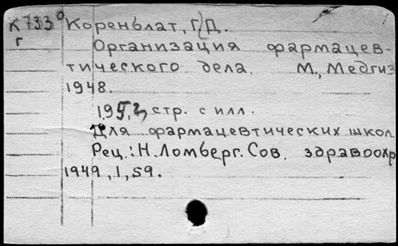 К733 Коренблат, Г. Д.
г Организация фармацев-
тического дела. М., Медгиз
1948.
стр. с илл.
Для фармацевтических школ
Рец.: Н. Ломберг. Сов. здравоохр
1949, 1, 59.